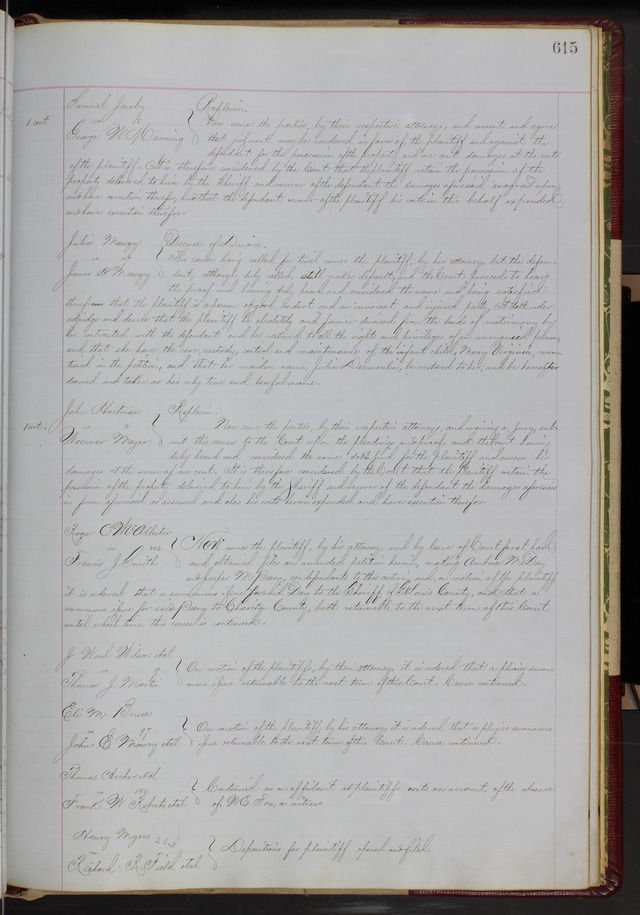 615
Samuel Jacoby } Replevin.
1 cent vs Now come the parties, by their respective attorneys, and consent and agree
George W Manning that judgment may be rendered in favor of the plaintiff and against the
defendant for the possession of the property and one cent damages at the costs
of the plaintiff. It is therefore considered by the Court that the plaintiff retain the possession of the
property delivered to him by the Sheriff and recover of the defendant the damages aforesaid as agreed upon
and have execution therefor, and that the defendant recover of the plaintiff his costs in this behalf expended
and have execution therefor.
Julia Maugy } Decree of Divorce.
vs This cause being called for trial comes the plaintiff, by her attorney, but the defen-
James H Maugy dant, although duly called, still makes default, and the Court proceeds to hear
the proof and having duly heard and considered the same and being satisfied
therefrom that the plaintiff is a person of good conduct and an innocent and injured party, It doth order
adjudge and decree that the plaintiff be absolutely and forever divorced from the bonds of matrimony by
her contracted with the defendant and be restored to all the rights and privileges of an unmarried person,
and that she have the care, custody, control and maintenance of the infant child, Mary Virginia, men-
tioned in the petition, and that her maiden name, Julia be restored to her, and be hereafter
deemed and taken as her only true and lawful name.
John Hartman } Replevin.
1 cent. vs Now come the parties, by their respective attorneys, and waiving a jury, sub-
Meyer mit the cause to the Court upon the pleadings and proofs and the Court having
duly heard and considered the same doth find for the plaintiff and assess his
damages at the sum of one cent. It is therefore considered by the Court that the plaintiff retain the
possession of the property delivered to him by the Sheriff and recover of the defendant the damages aforesaid
in form aforesaid as assessed and also his costs herein expended and have execution therefor.
Roger McAllister
vs 102 } Now comes the plaintiff, by his attorney, and by leave of Court first had
Francis J Smith and obtained files an amended petition herein, making Ambrose M Day
and Jasper M codefendants to this action, and on motion of the plaintiff
it is ordered that a summons issue for said Day to the Sheriff of St Louis County, and that a
summons issue for said to Chariton County, both returnable to the next term of this Court
until which time this cause is continued.
J Wood Wilson et al
vs 9 } On motion of the plaintiffs, by their attorney, it is ordered that a pluries sum-
Thomas J Martin mons issue returnable to the next term of this Court. Cause continued.
Eli M Bruce
vs 37 } On motion of the plaintiff, by his attorney, it is ordered that a pluries summons
John E Mowry et al issue returnable to the next term of this Court. Cause continued.
Thomas Archer et al
vs } Continued as on affidavit at plaintiffs costs on account of the absence
Frank W Roberts et al of W E Fox, a witness.
Henry Myers
vs } Depositions for plaintiff opened and filed.
Richard R Field et al